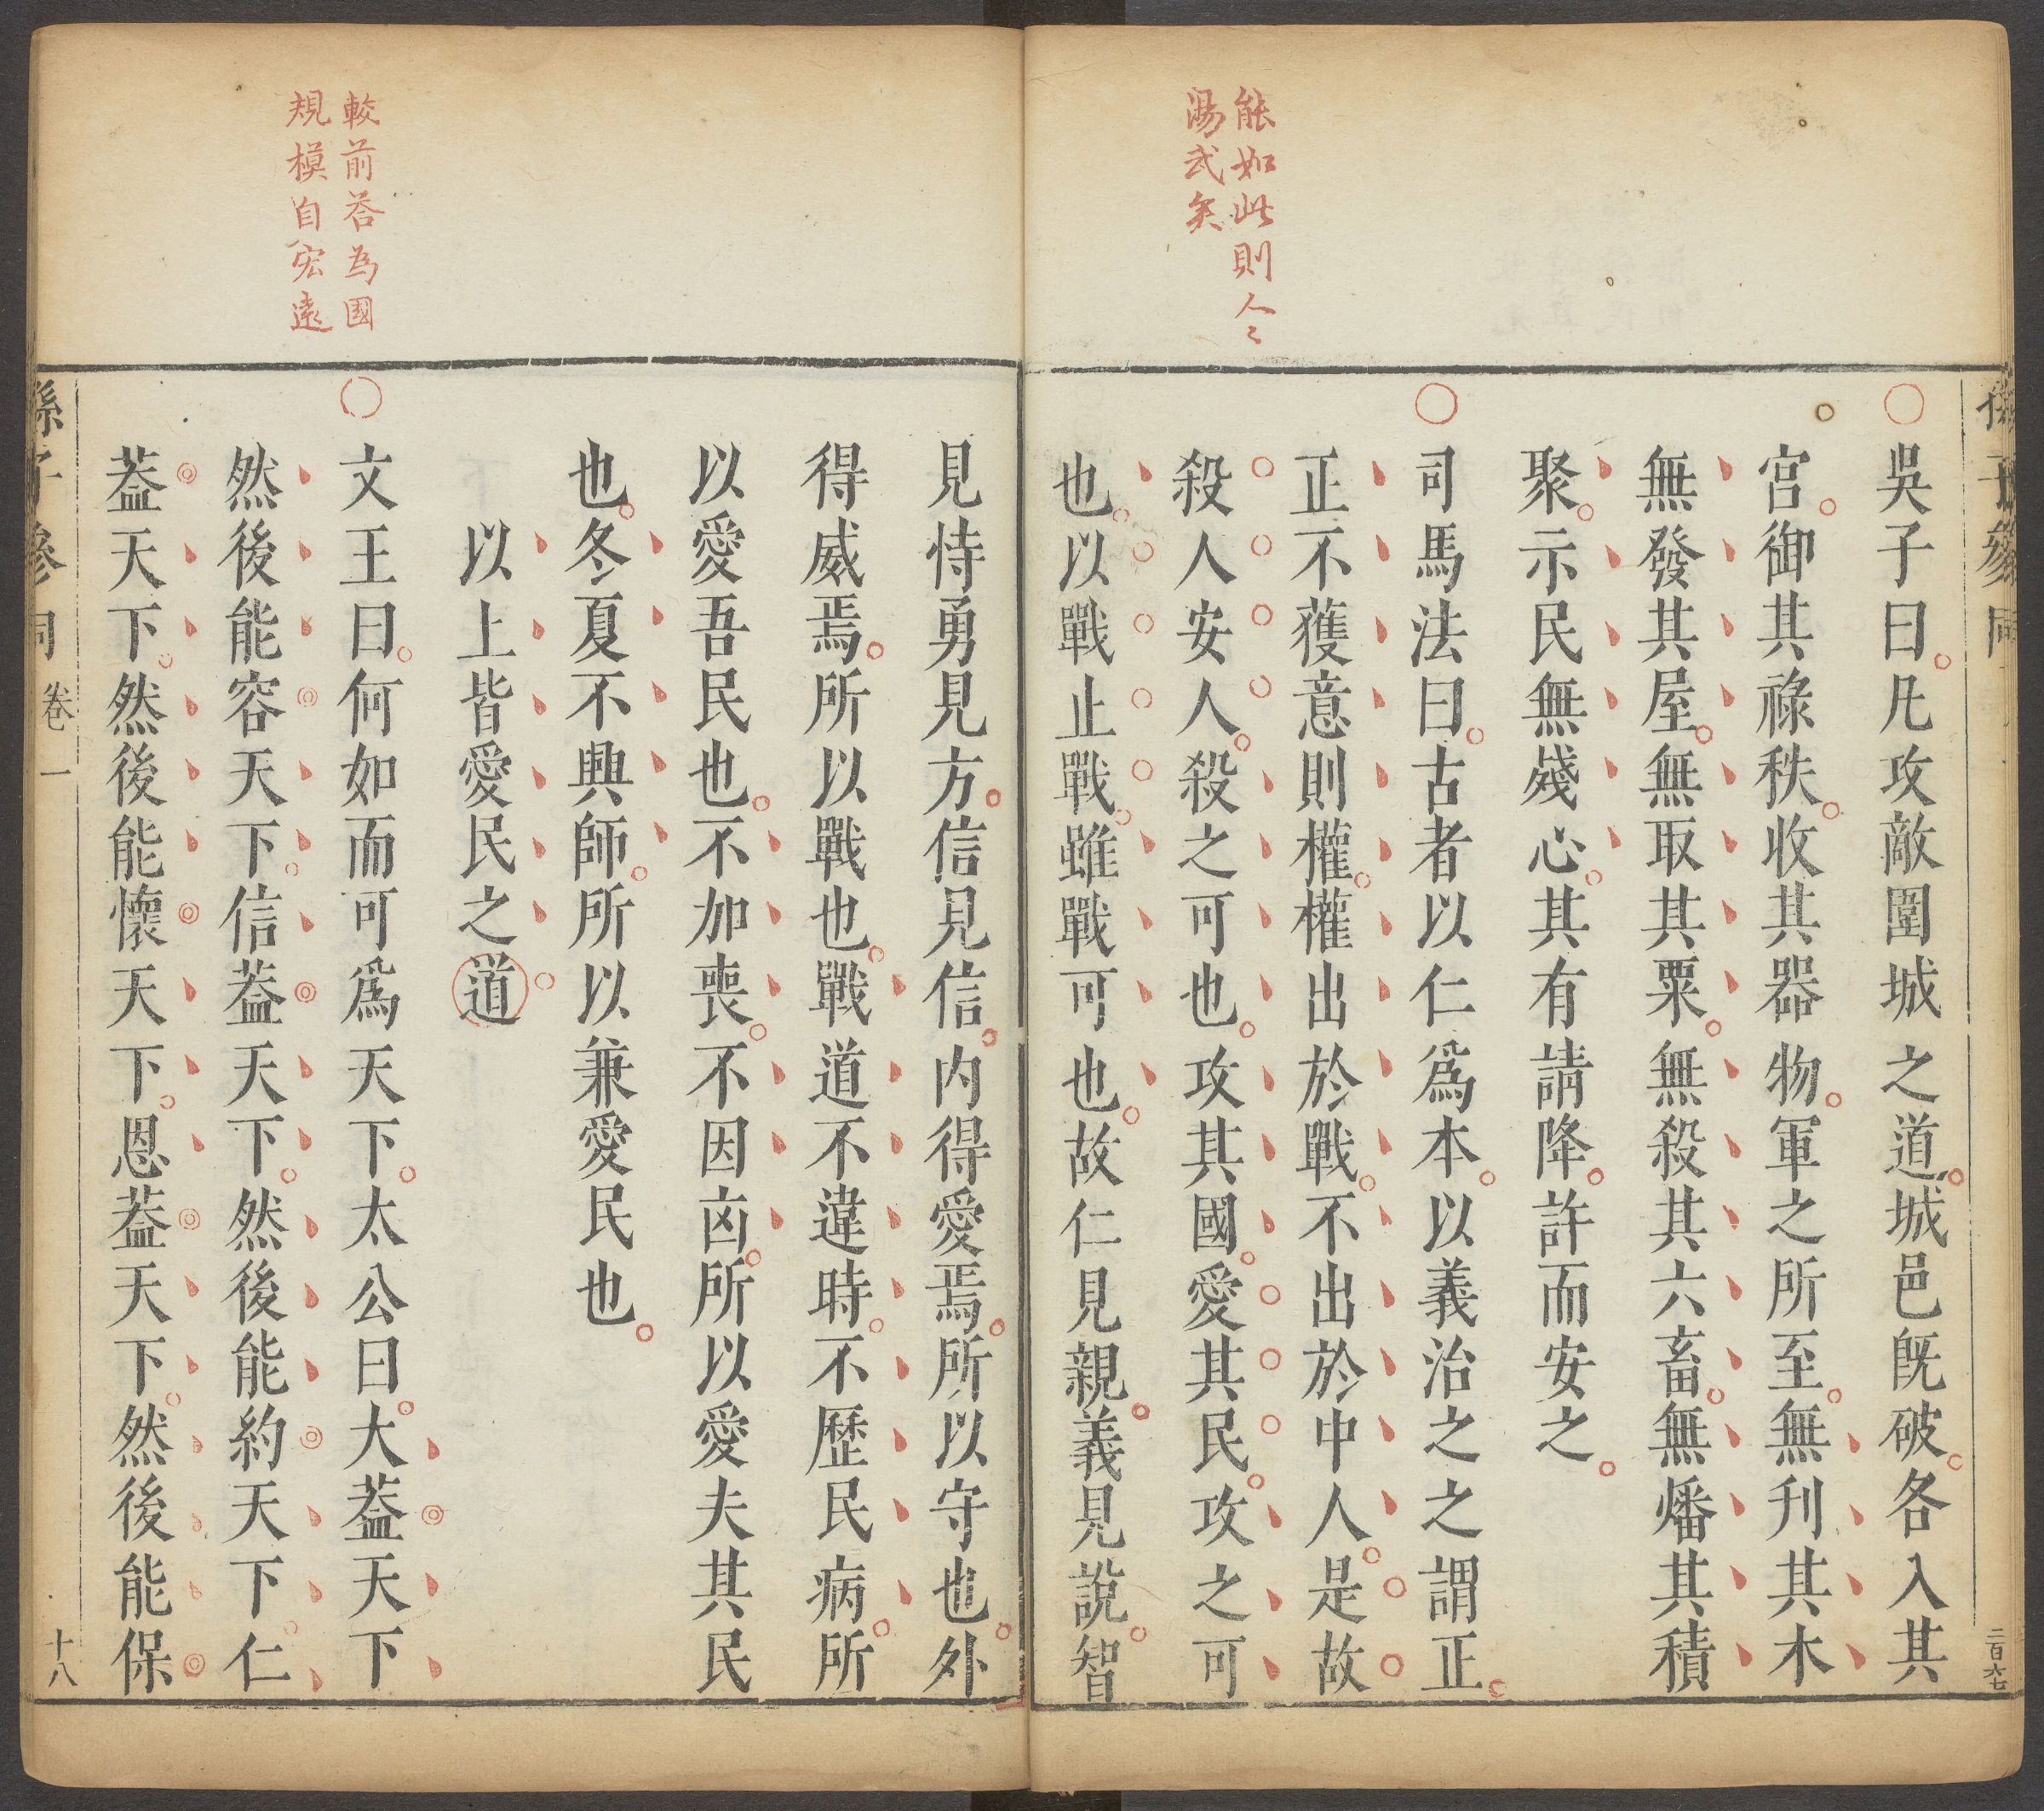 能如此則人々
湯武矣
吳子曰。凡攻敵圍城之道。城邑既破。各入其
宮。御其祿秩。收其器物。軍之所至。無刋其木
無發其屋。無取其粟。無殺其六畜。無燔其積
聚。示民無殘心。其有請降。許而安之。
司馬法曰。古者以仁爲本。以義治之之謂正。
正不獲意則權。權出於戰。不出於中人。是故
殺人安人。殺之可也。攻其國。愛其民。攻之可
也。以戰止戰。雖戰可也。故仁見親。義見說。智
二百六七
較前荅為國
規模自宏遠
見恃勇見方。信見信。内得愛焉。所以守也。外
得威焉。所以戰也。戰道不違時。不歷民病。所
以愛吾民也。不加喪。不因凶。所以愛夫其民
也。冬夏不興師。所以兼愛民也。
以上皆愛民之道。
文王曰。何如而可爲天下。太公曰。大葢天下
然後能容天下。信葢天下。然後能約天下。仁
葢天下。然後能懷天下。恩葢天下。然後能保
孫子參同 卷一
十八